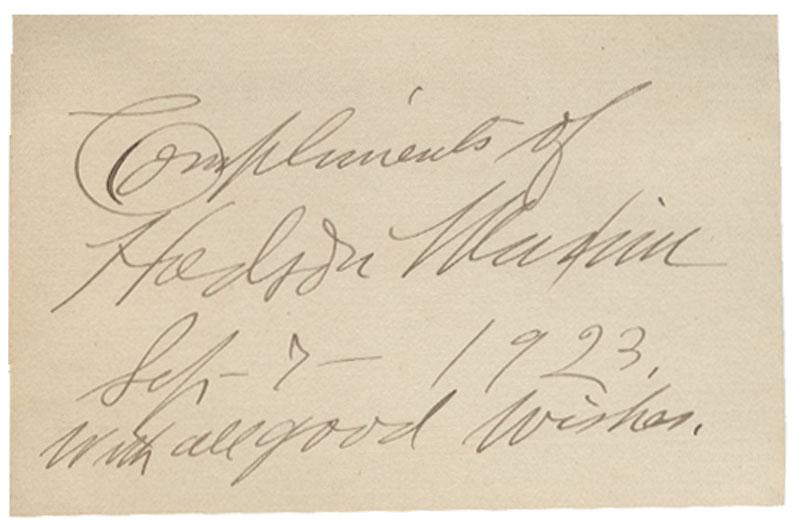 Compliments of
Hudson Maxim
Sep- 7- 1923.
With all good Wishes.